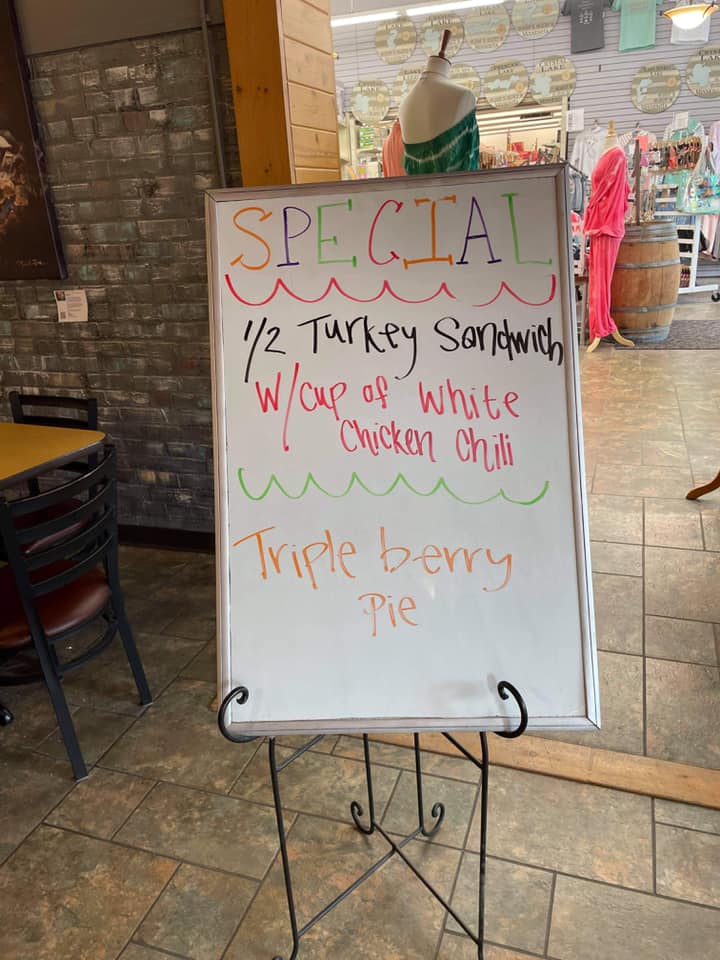 SPECIAL
1/2 Turkey Sandwich
w/cup of White
Chicken Chili
Triple berry
Pie